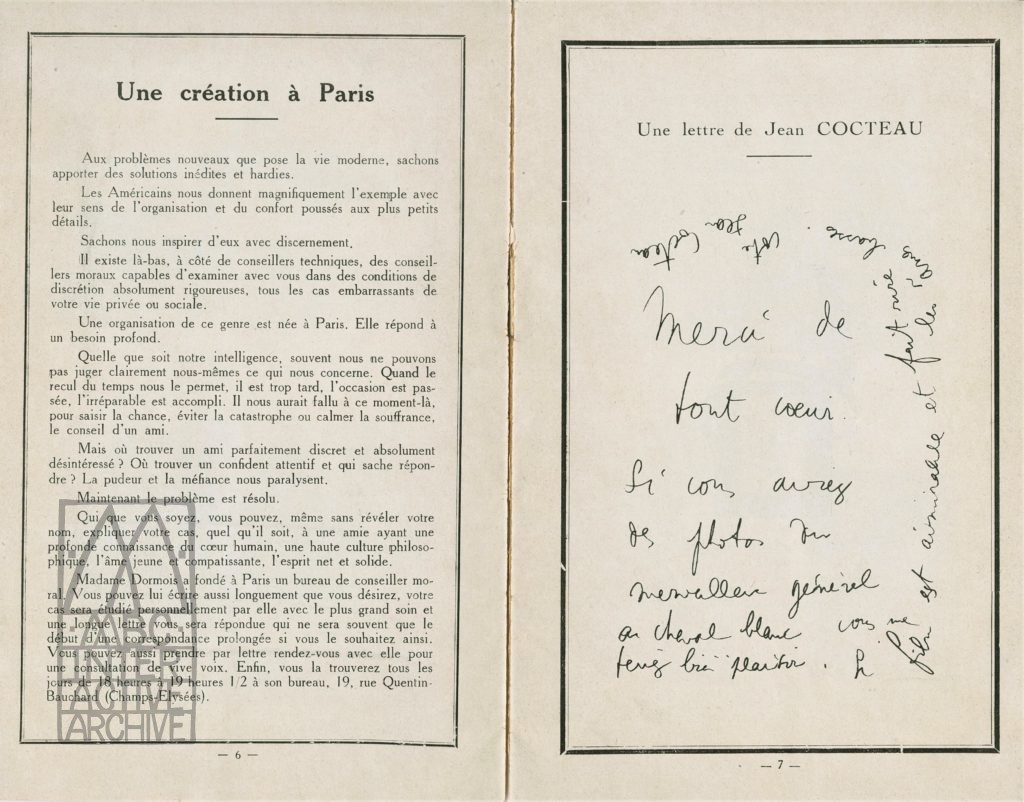 Une création à Paris
Aux problèmes nouveaux que pose la vie moderne, sachons
apporter des solutions inédites et hardies.
Les Américains nous donnent magnifiquement l'exemple avec
leur sens de l'organisation et du confort poussés aux plus petits
détails.
Sachons nous inspirer d'eux avec discernement.
Il existe là-bas, à côté de conseillers techniques, des conseil-
lers moraux capables d'examiner avec vous dans des conditions de
discrétion absolument rigoureuses, tous les cas embarrassants de
votre vie privée ou sociale.
Une organisation de ce genre est née à Paris. Elle répond à
un besoin profond.
Quelle que soit notre intelligence, souvent nous ne pouvons
pas juger clairement nous-mêmes ce qui nous concerne. Quand le
recul du temps nous le permet, il est trop tard, l'occasion est pas-
sée, l'irréparable est accompli. Il nous aurait fallu à ce moment-là,
pour saisir la chance, éviter la catastrophe ou calmer la souffrance,
le conseil d'un ami.
Mais où trouver un ami parfaitement discret et absolument
désintéressé ? Où trouver un confident attentif et qui sache répon-
dre ? La pudeur et la méfiance nous paralysent.
Maintenant le problème est résolu.
Qui que vous soyez, vous pouvez, même sans révéler votre
nom, expliquer votre cas, quel qu'il soit, à une amie ayant une
profonde connaissance du cœur humain, une haute culture philoso-
phique, l'âme jeune et compatissante, l'esprit net et solide.
Madame Dormois a fondé à Paris un bureau de conseiller mo-
ral. Vous pouvez lui écrire aussi longuement que vous désirez, votre
cas sera étudié personnellement par elle avec le plus grand soin et
une longue lettre vous sera répondue qui ne sera souvent que le
début d'une correspondance prolongée si vous le souhaitez ainsi.
Vous pouvez aussi prendre par lettre rendez-vous avec elle pour
une consultation de vive voix. Enfin, vous la trouverez tous les
jours de 18 heures à 19 heures 1/2 à son bureau, 19, rue Quentin-
Bauchard (Champs-Elysées).
— 6 —
MBC
INTER
ACTIVE
ARCHIVE
Une lettre de Jean COCTEAU
Merci de
tout cœur.
Si vous aviez
des photos du
merveilleux général
au cheval blanc vous me
feriez bien plaisir. Le
film est admirable et fait rire
les âmes basses.
Votre Jean Cocteau
— 7 —